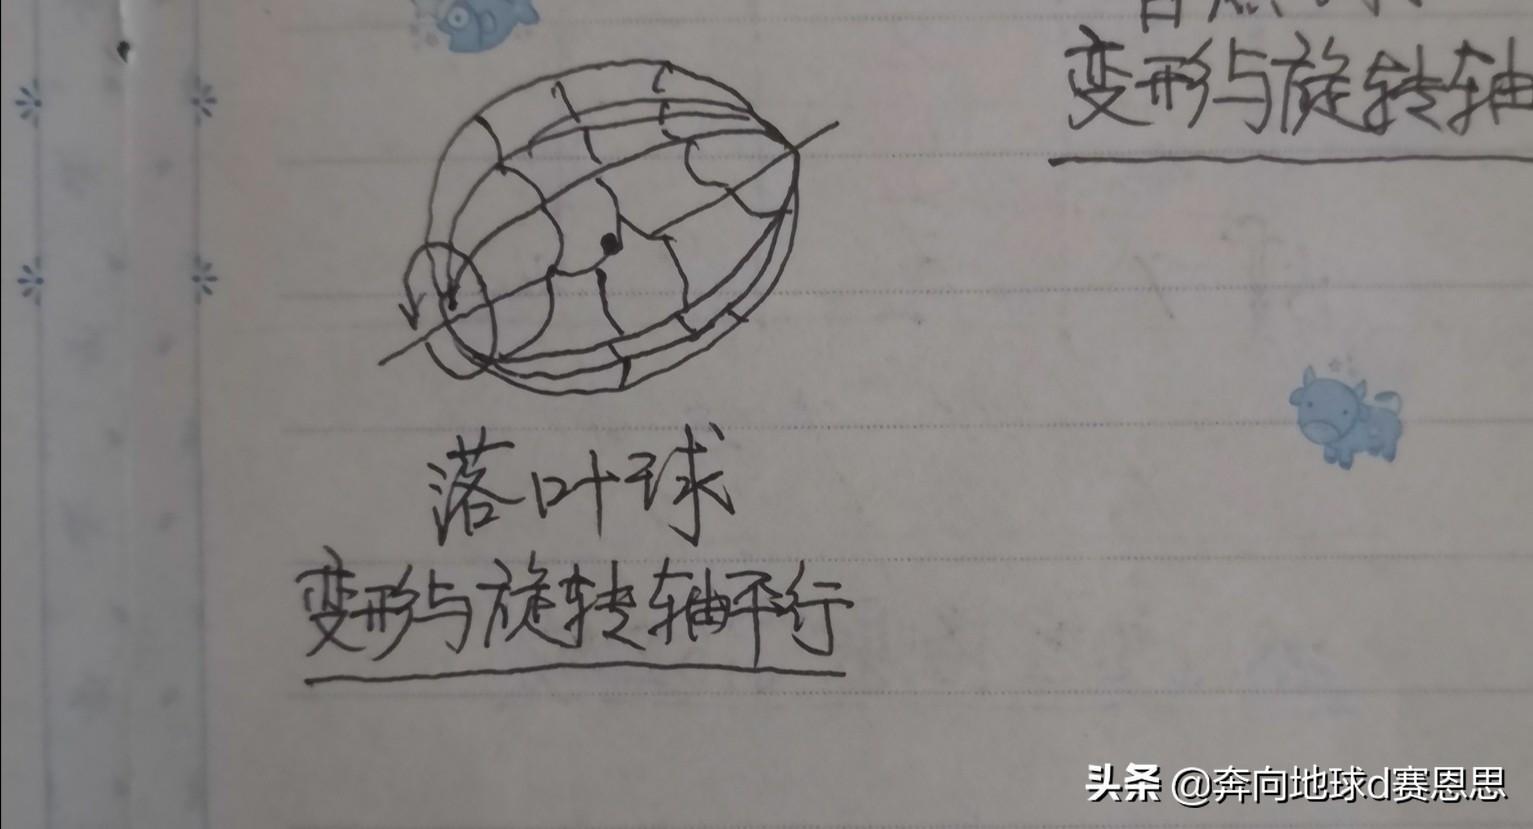 变形与旋转轴
落叶球
变形与旋转轴平行
头条 @奔向地球d赛恩思